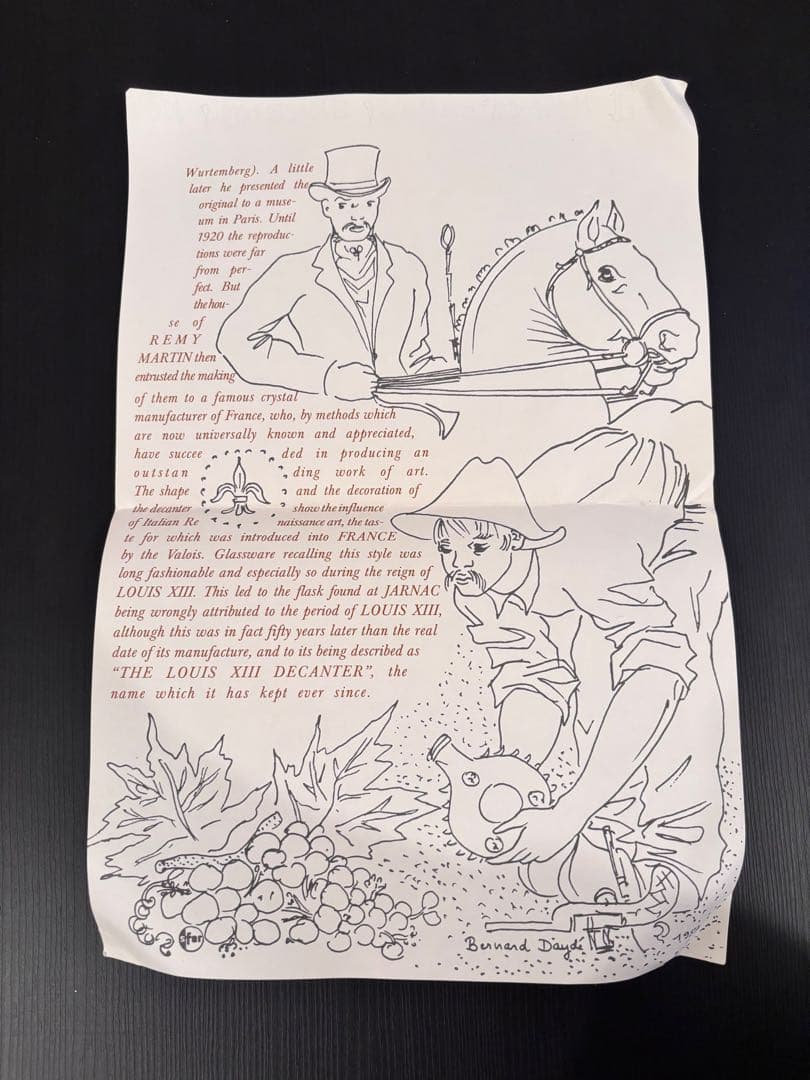 Wurtemberg). A little
later he presented the
original to a muse-
um in Paris. Until
1920 the reproduc-
tions were far
from per-
fect. But
the hou-
se of
REMY
MARTIN then
entrusted the making
of them to a famous crystal
manufacturer of France, who, by methods which
are now universally known and appreciated,
have succee ded in producing an
outstan ding work of art.
The shape and the decoration of
the decanter show the influence
of Italian Re naissance art, the tas-
te for which was introduced into FRANCE
by the Valois. Glassware recalling this style was
long fashionable and especially so during the reign of
LOUIS XIII. This led to the flask found at JARNAC
being wrongly attributed to the period of LOUIS XIII,
although this was in fact fifty years later than the real
date of its manufacture, and to its being described as
"THE LOUIS XIII DECANTER", the
name which it has kept ever since.
Bernard Daydé